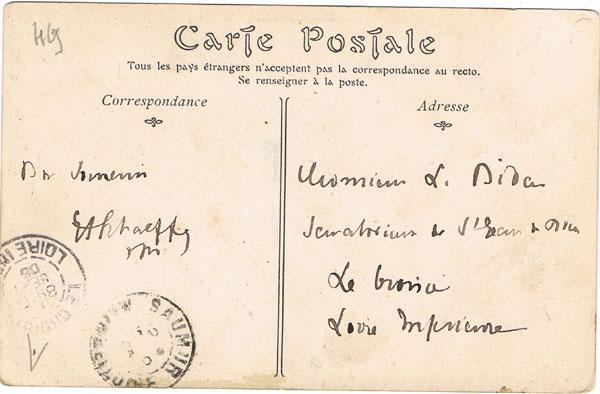 4G
Carte Postale
Tous les pays étrangers n'acceptent pas la correspondance au recto.
Se renseigner à la poste.
Correspondance
Adresse
Bon Souvenir
Monsieur L.
Sanatorium de St Jean de Dieu
Le Croisic
Loire Inférieure
LOIRE INF
SAUMUR